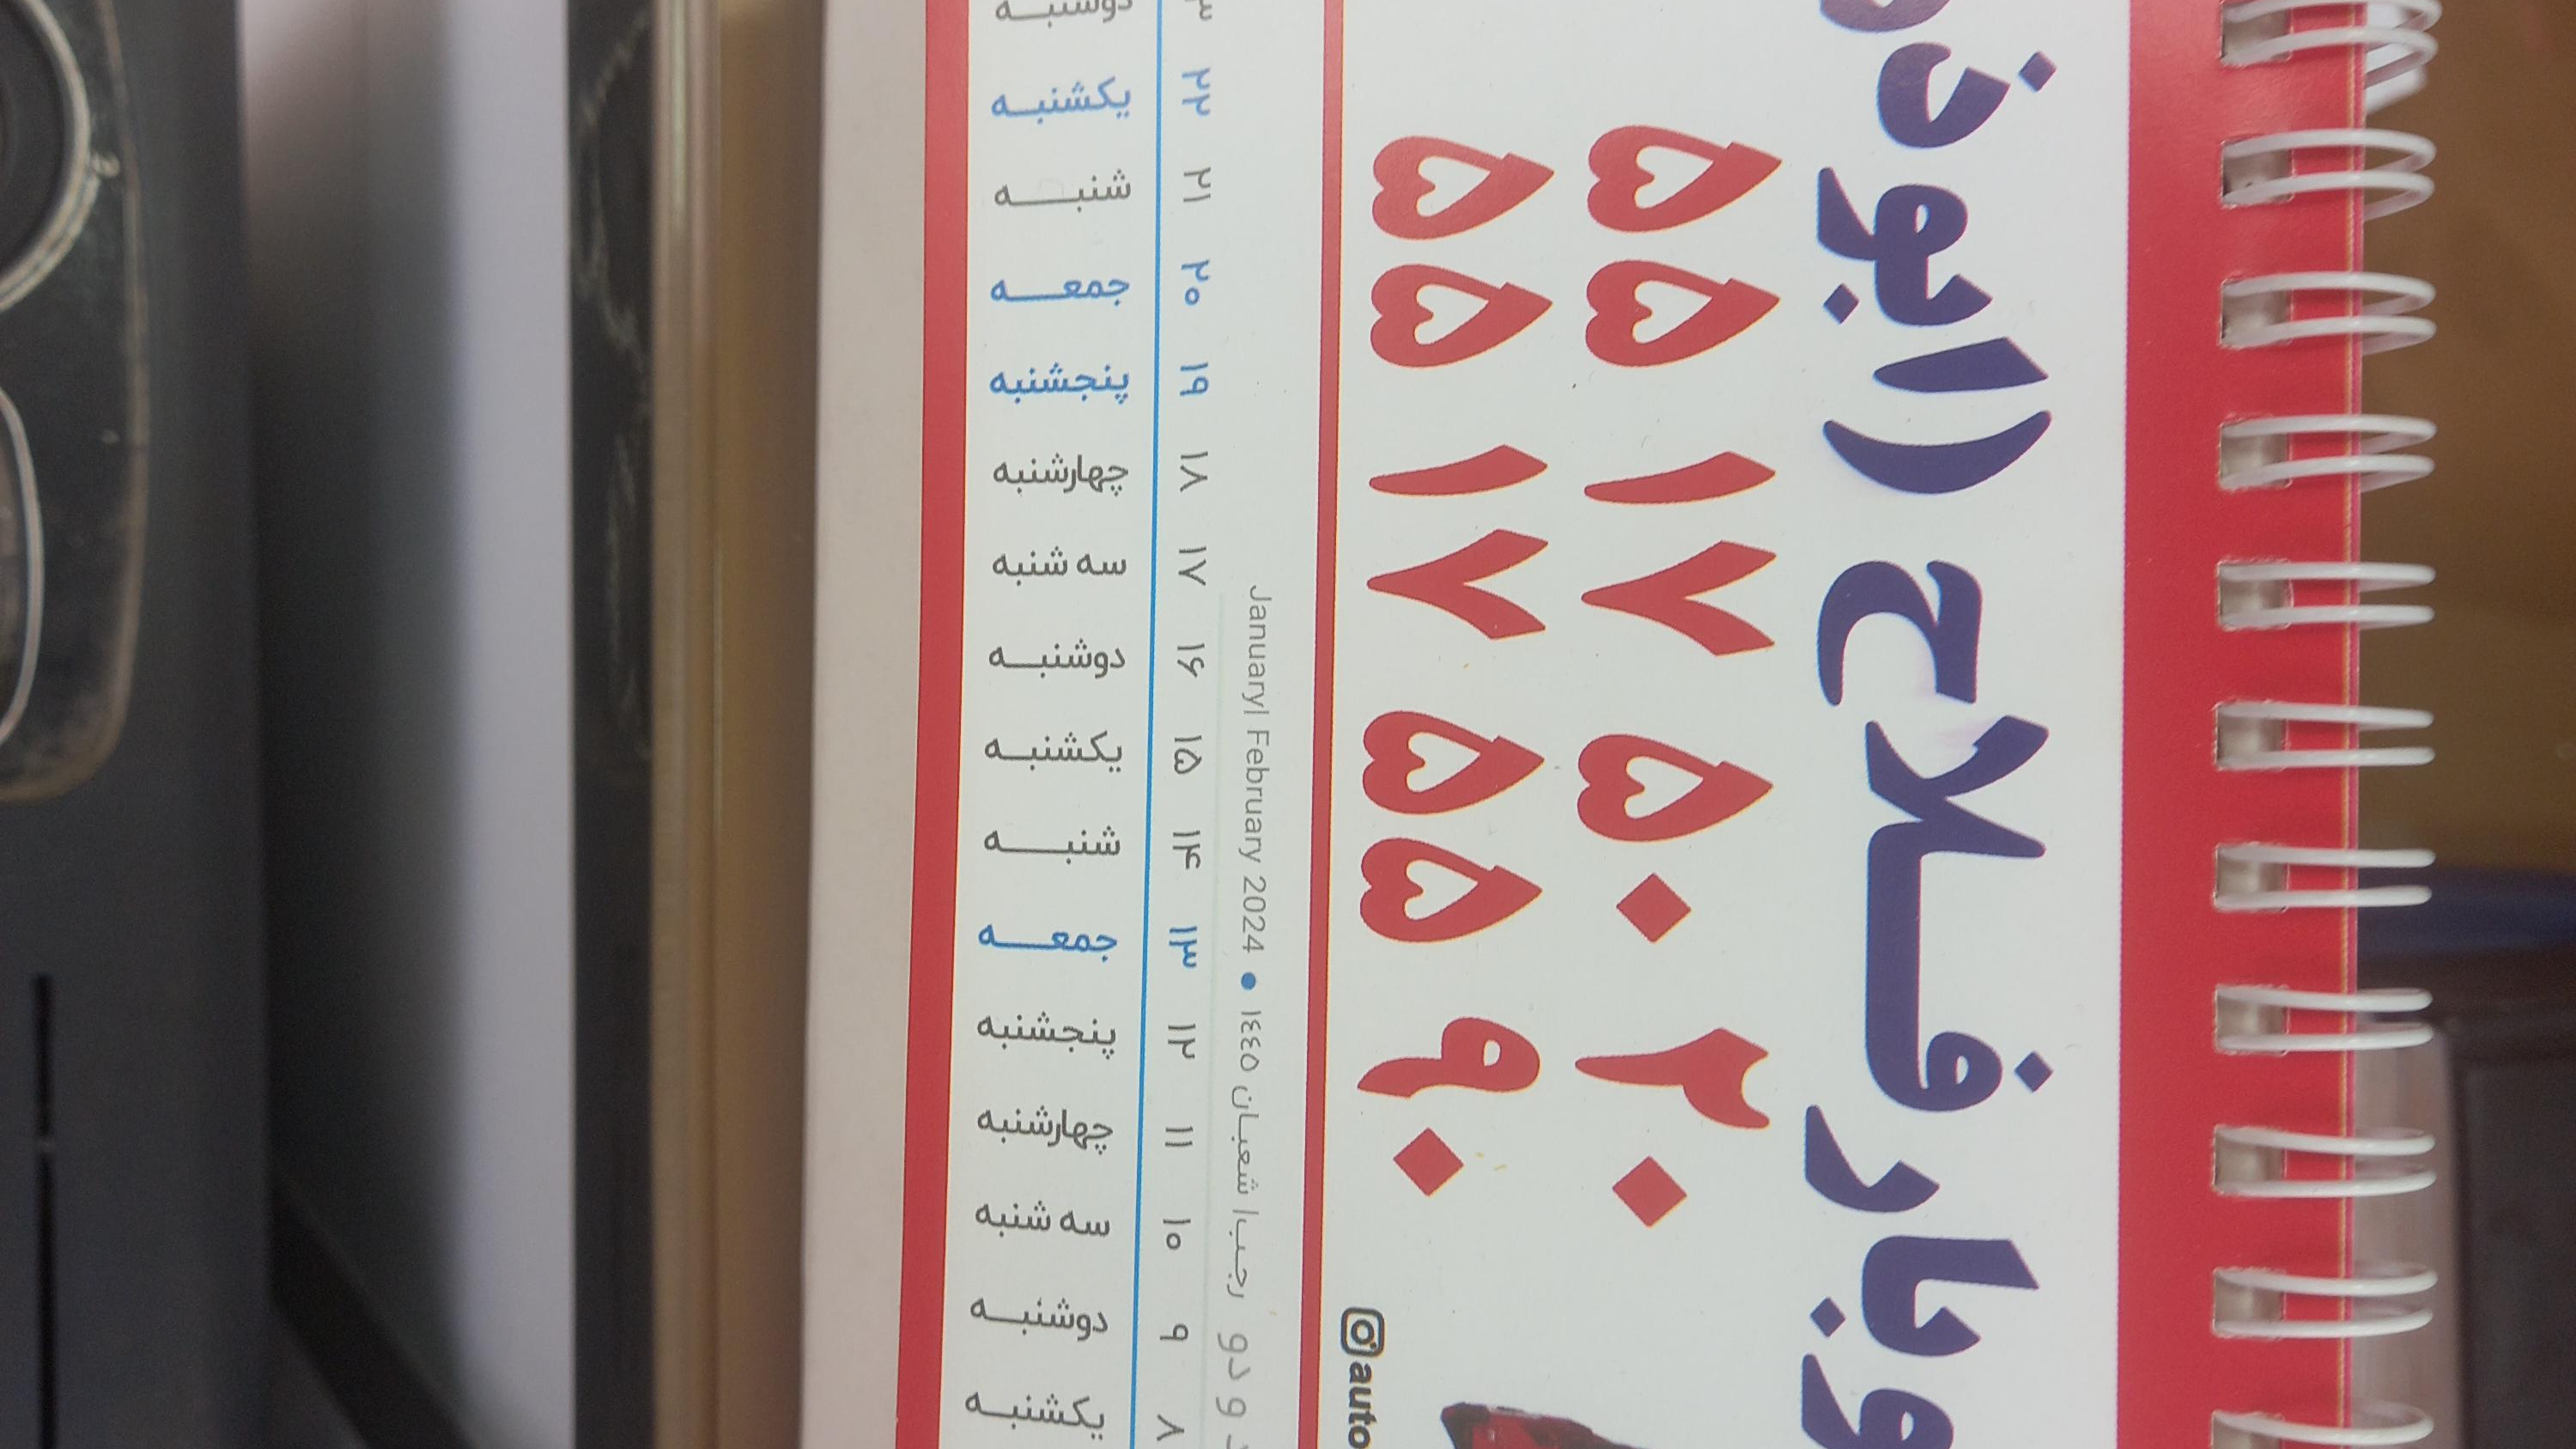 وبار فـلاح (ابوذر
۵۵ ۱۷ ۵۰ ۲۰
۵۵ ۱۷ ۵۵ ۹۰
auto
و دو رجب| شعبان ١٤٤٥ ● January| February 2024
۸ ۹ ۱۰ ۱۱ ۱۲ ۱۳ ۱۴ ۱۵ ۱۶ ۱۷ ۱۸ ۱۹ ۲۰ ۲۱ ۲۲
یکشنبـه دوشنبـه سه شنبه چهارشنبه پنجشنبه جمعـه شنبـه یکشنبـه دوشنبـه سه شنبه چهارشنبه پنجشنبه جمعـه شنبـه یکشنبـه دوشنبـه